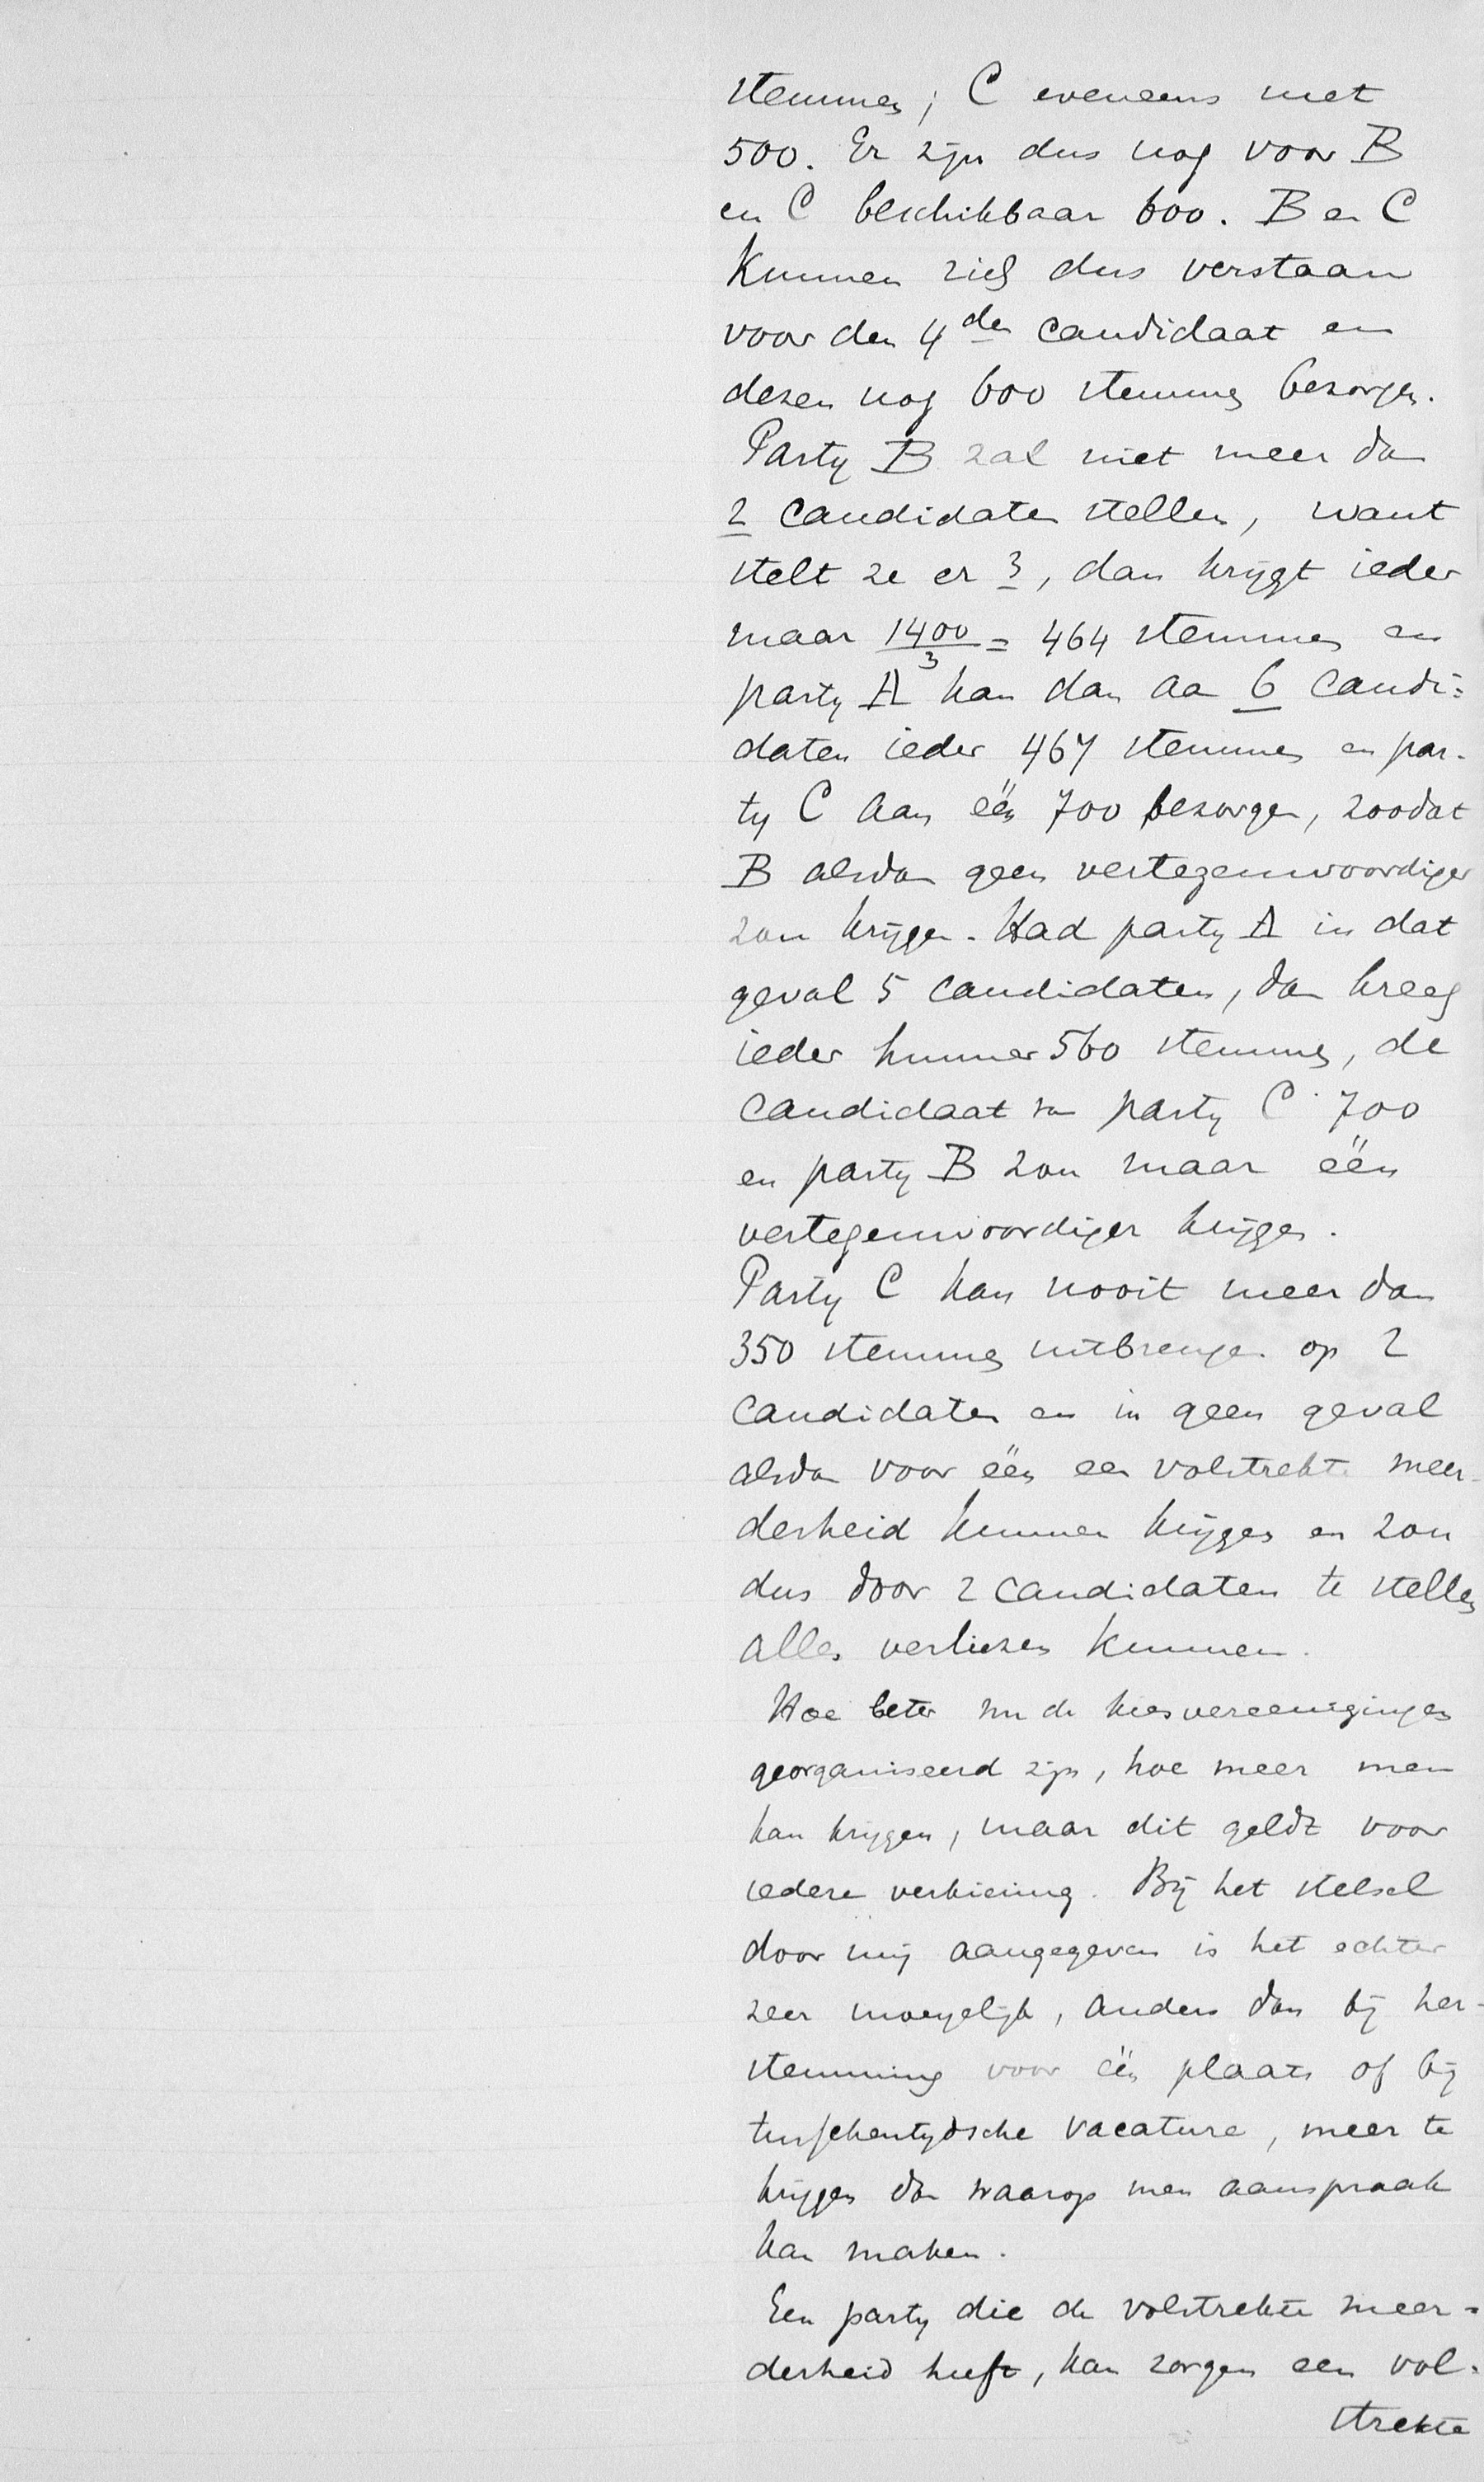 stemmen; C eveneens met
500. Er zijn dus nog voor B
en C beschikbaar 600. B en C
kunnen zich dus verstaan
voor den 4den candidaat en
dezen nog 600 stemmen bezorgen.
Party B zal niet meer dan
2 candidaten stellen, want
stelt ze er 3, dan krijgt ieder
maar 1400/3 = 464 stemmen en
party A kan dan aan 6 candi=
daten ieder 467 stemmen en par-
ty C aan één 700 bezorgen, zoodat
B alsdan geen vertegenwoordiger
zou krijgen. Had party A in dat
geval 5 candidaten, dan kreeg
ieder hunner 560 stemmen, de
candidaat van party C 700
en party B zou maar één
vertegenwoordiger krijgen.
Party C kan nooit meer dan
350 stemmen uitbrengen op 2
candidaten en in geen geval
alsdan voor één een volstrekte meer-
derheid kunnen krijgen en zou
dus door 2 candidaten te stellen
alles verliezen kunnen.
Hoe beter nu de kiesvereenigingen
georganiseerd zijn, hoe meer men
kan krijgen, maar dit geldt voor
iedere verkiezing. Bij het stelsel
door mij aangegeven is het echter
zeer moeyelijk, anders dan bij her-
stemming voor één plaats of bij
tusschentijdsche vacature, meer te
krijgen dan waarop men aanspraak
kan maken.
Een party die de volstrekte meer=
derheid heeft, kan zorgen een vol-
strekte